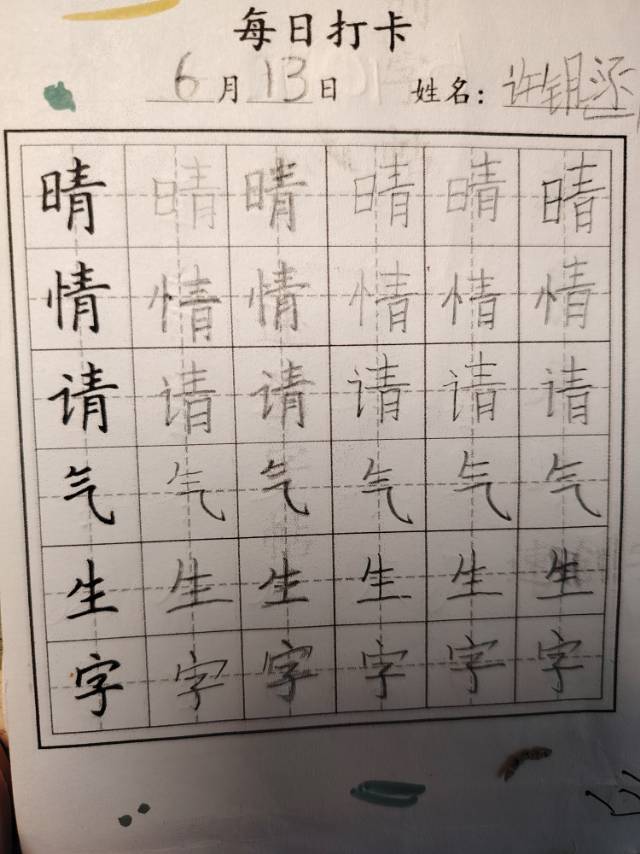 每日打卡
6月13日 姓名：许钥涵
晴晴晴晴晴晴
情情情情情情
请请请请请请
气气气气气气
生生生生生生
字字字字字字